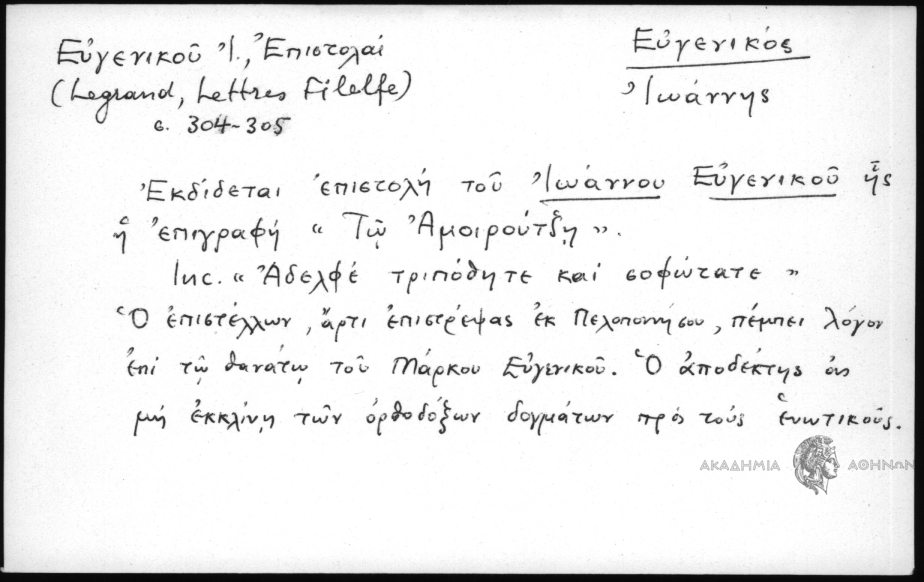 Εὐγενικοῦ Ἰ., Ἐπιστολαί
(Legrand, Lettres Filelfe)
σ. 304-305
Εὐγενικός
Ἰωάννης
Ἐκδίδεται ἐπιστολή τοῦ Ἰωάννου Εὐγενικοῦ ἧς
ἡ ἐπιγραφή " Τῷ Ἀμοιρούτζῃ ".
Inc. " Ἀδελφέ τριπόθητε καί σοφώτατε "
Ὁ ἐπιστέλλων, ἄρτι ἐπιστρέψας ἐκ Πελοποννήσου, πέμπει λόγον
ἐπί τῷ θανάτῳ τοῦ Μάρκου Εὐγενικοῦ. Ὁ ἀποδέκτης ἄς
μή ἐκκλίνῃ τῶν ὀρθοδόξων δογμάτων πρός τούς ἑνωτικούς.
ΑΚΑΔΗΜΙΑ ΑΘΗΝΩΝ